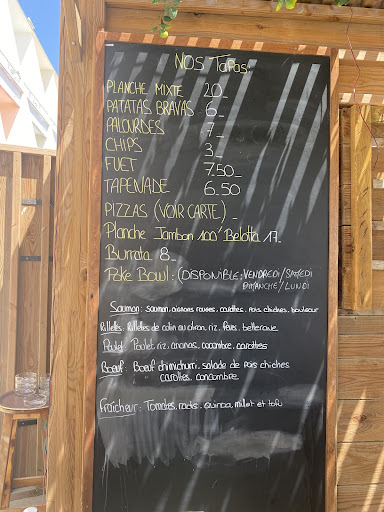 NOS TAPAS:
PLANCHE MIXTE 20_
PATATAS BRAVAS 6_
PALOURDES 7_
CHIPS 3_
FUET 7.50_
TAPENADE 6.50
PIZZAS (VOIR CARTE)_
Planche Jambon 100% Bellota 17_
Burrata 8_
Poke Bowl: (DISPONIBLE: VENDREDI/SAMEDI
DIMANCHE/LUNDI
Saumon: saumon, oignons rouges, carottes, pois chiches,
Rillettes: Rillettes de colin au citron, riz, fèves, betterave
Poulet: Poulet, riz, ananas, concombre, carottes
Boeuf: Boeuf chimichurri, salade de pois chiches
carottes, concombre
Fraîcheur: Tomates, radis, quinoa, millet et tofu